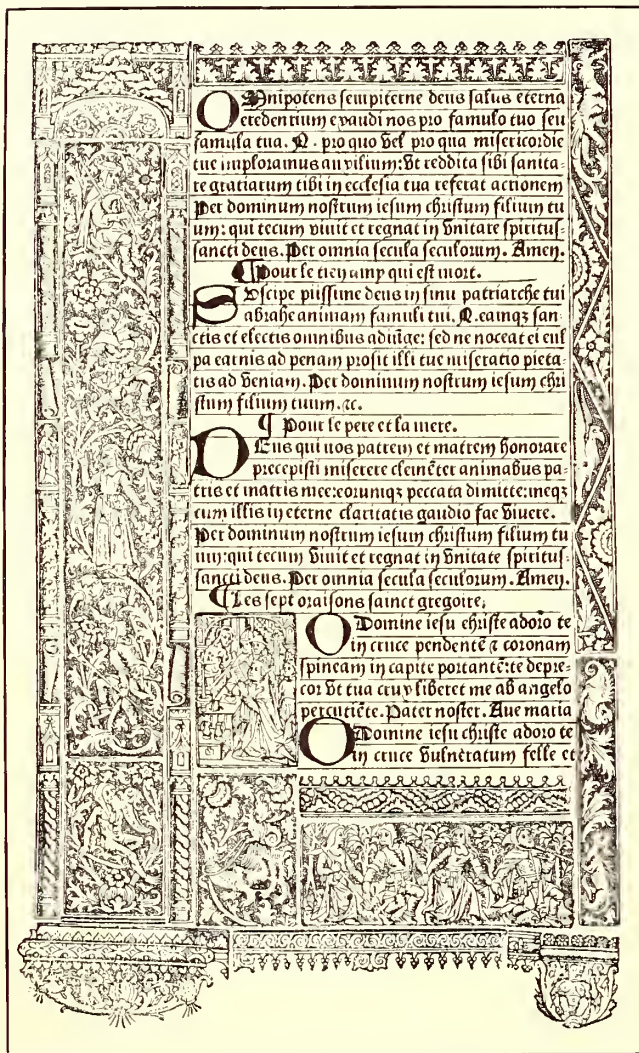 Omnipotens sempiterne deus salus eterna
credentium exaudi nos pro famulo tuo seu
famula tua. N. pro quo vel pro qua misericordie
tue imploramus auxilium: Vt reddita sibi sanita-
te gratiarum tibi in ecclesia tua referat actionem
Per dominum nostrum iesum christum filium tu
um: qui tecum viuit et regnat in vnitate spiritus-
sancti deus. Per omnia secula seculorum. Amen.
¶ Pour le tien amy qui est mort.
SVscipe piissime deus in sinu patriarche tui
abrahe animam famuli tui. N. eamqꝫ san-
ctis et electis omnibus adiũge: sed ne noceat ei cul
pa carnis ad penam prosit illi tue miseratio pieta-
tis ad veniam. Per dominum nostrum iesum chri
stum filium tuum. ⁊c.
¶ Pour le pere et la mere.
DEus qui nos patrem et matrem honorare
precepisti miserere clemẽter animabus pa-
tris et matris mee: eorumqꝫ peccata dimitte: meqꝫ
cum illis in eterne claritatis gaudio fac viuere.
Per dominum nostrum iesum christum filium tu
um: qui tecum viuit et regnat in vnitate spiritus-
sancti deus. Per omnia secula seculorum. Amen.
¶ Les sept oraisons sainct gregoire.
O Domine iesu christe adoro te
in cruce pendentẽ ⁊ coronam
spineam in capite portantẽ: te depre-
cor vt tua crux liberet me ab angelo
percutiẽte. Pater noster. Aue maria
O Domine iesu christe adoro te
in cruce vulneratum felle et